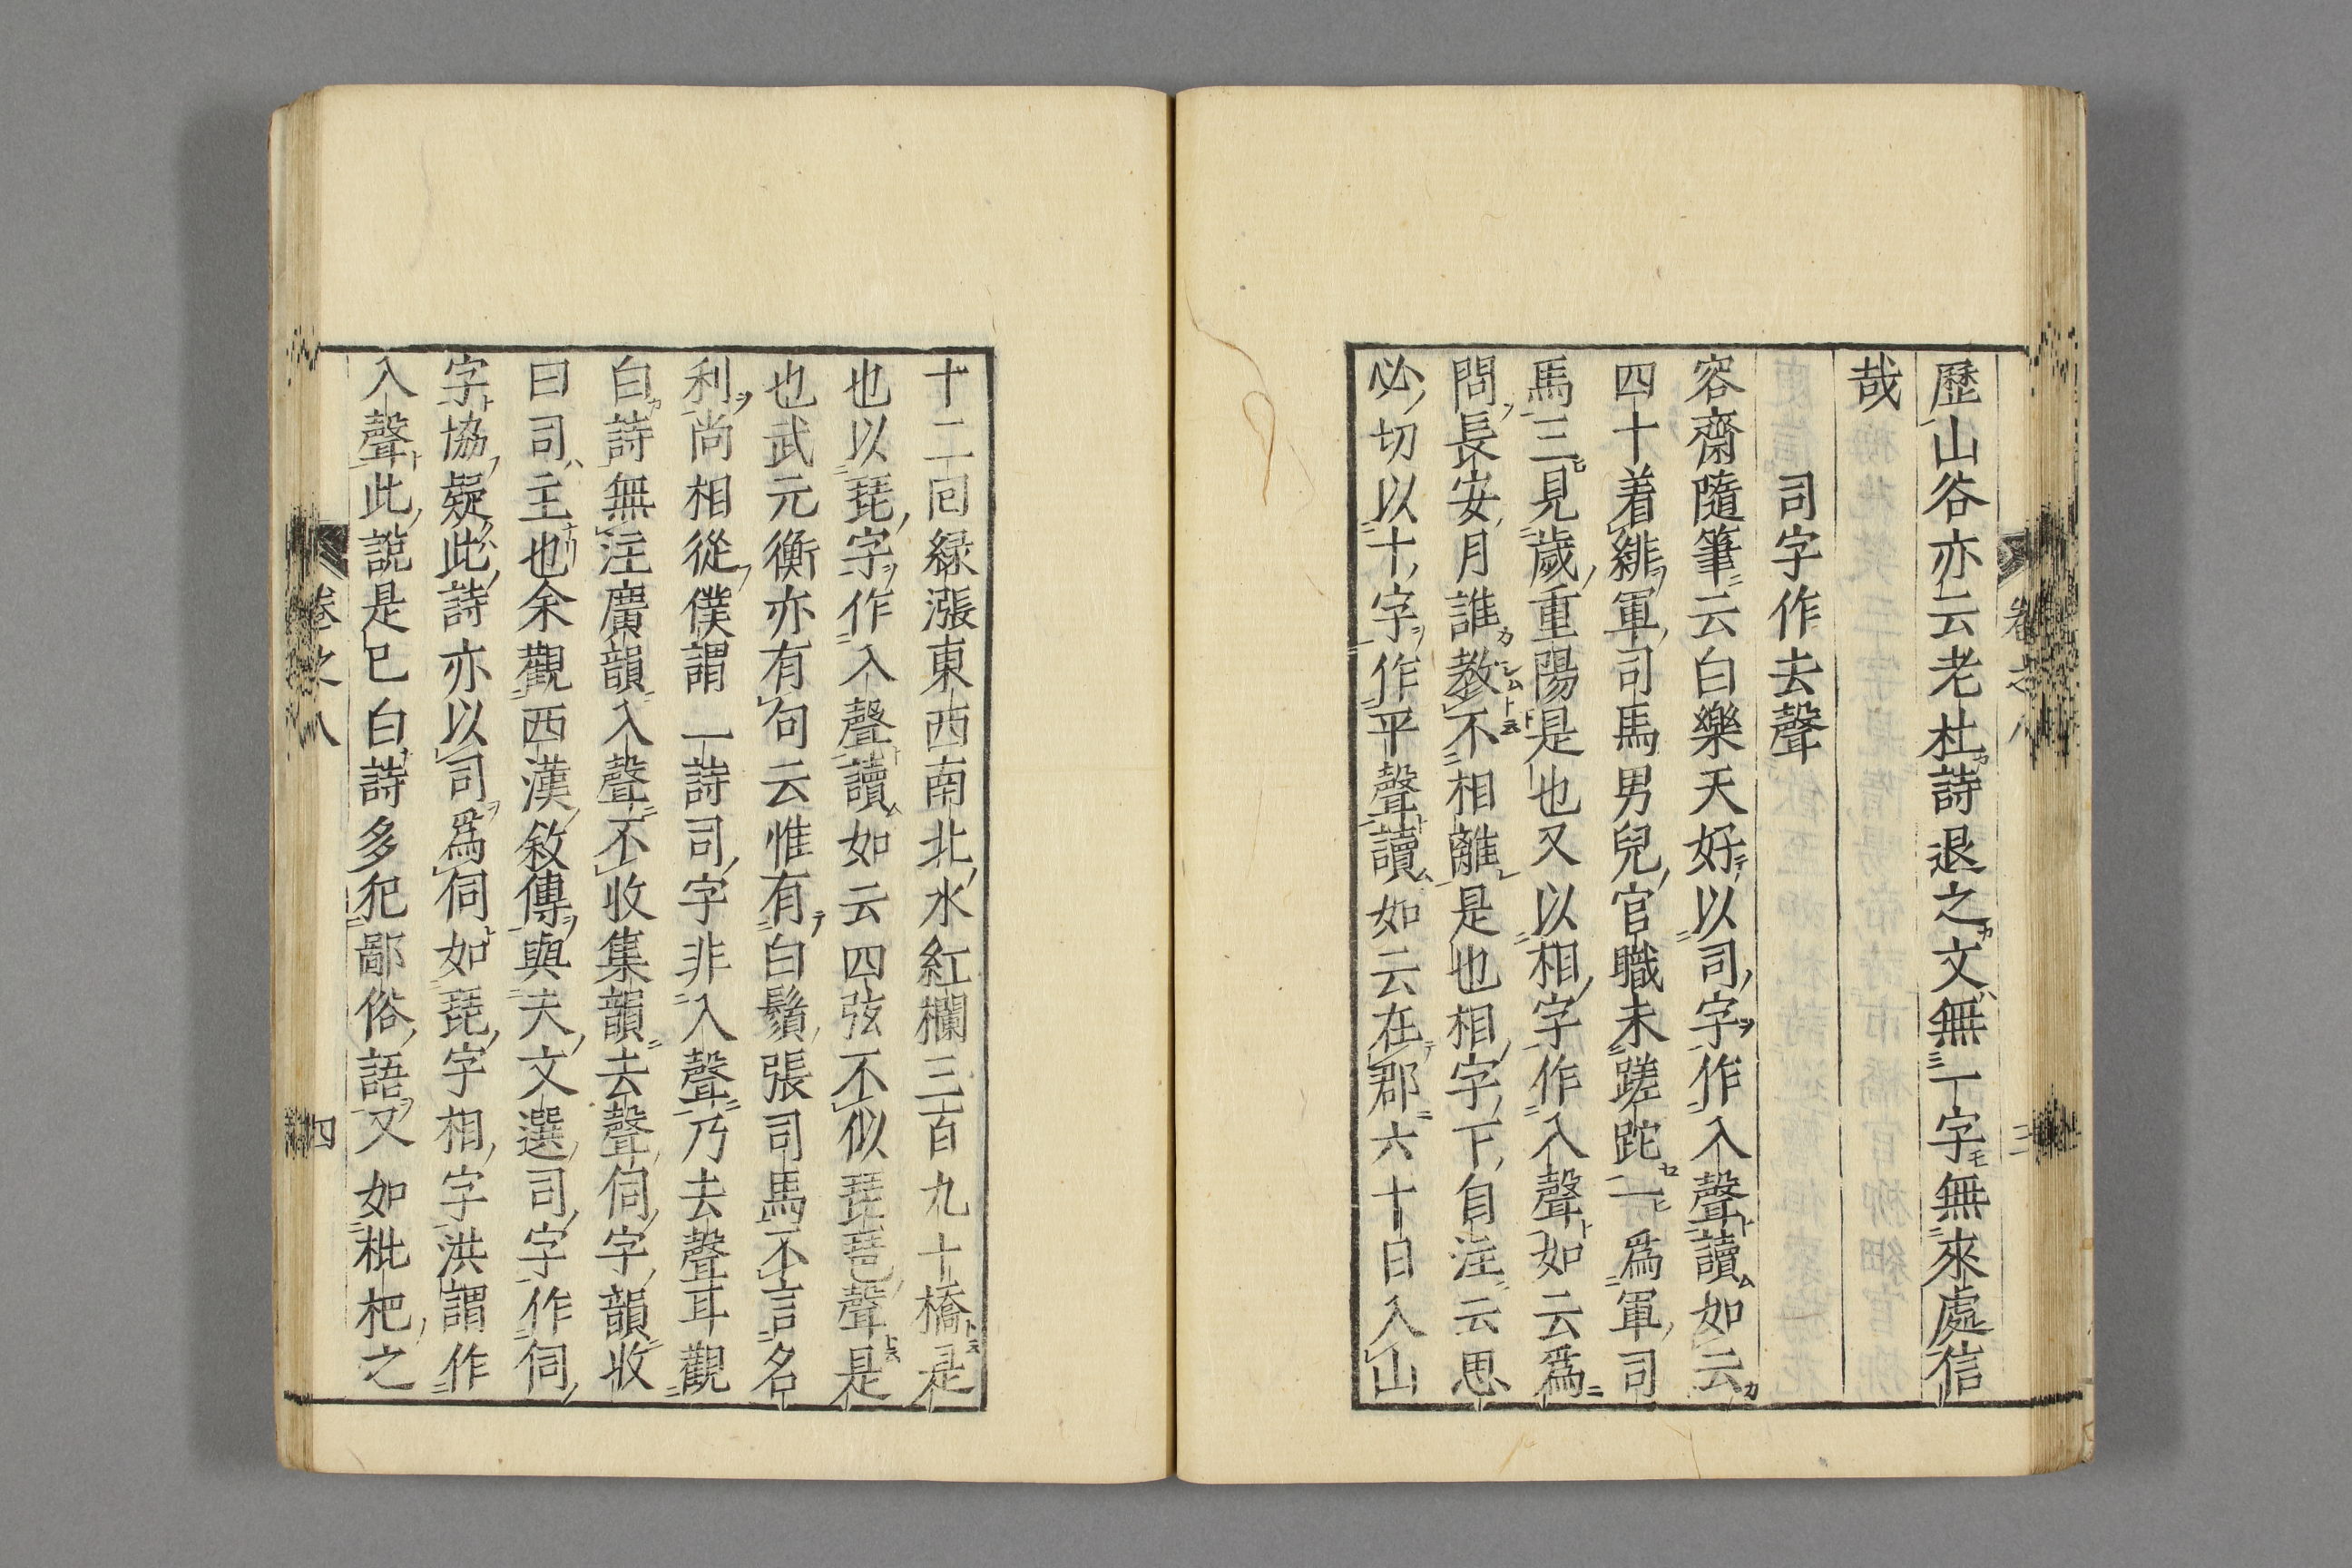 歷山谷亦云老杜詩退之文無一字無來處信
哉
司字作去聲
容齋隨筆云白樂天好以司字作入聲讀如云
四十着緋軍司馬男兒官職未蹉跎一爲軍司
馬三見歲重陽是也又以相字作入聲如云爲
問長安月誰教不相離是也相字下自注云思
必切以十字作平聲讀如云在郡六十日入山
十二回緑漲東西南北水紅欄三百九十橋是
也以琵字作入聲讀如云四弦不似琵琶聲是
也武元衡亦有句云惟有白鬚張司馬不言名
利尚相從僕謂一詩司字非入聲乃去聲耳觀
白詩無注廣韻入聲不收集韻去聲伺字韻收
曰司主也余觀西漢敘傳與夫文選司字作伺
字協疑此詩亦以司爲伺如琵字相字洪謂作
入聲此說是已白詩多犯鄙俗語又如枇杷之
卷之八
四